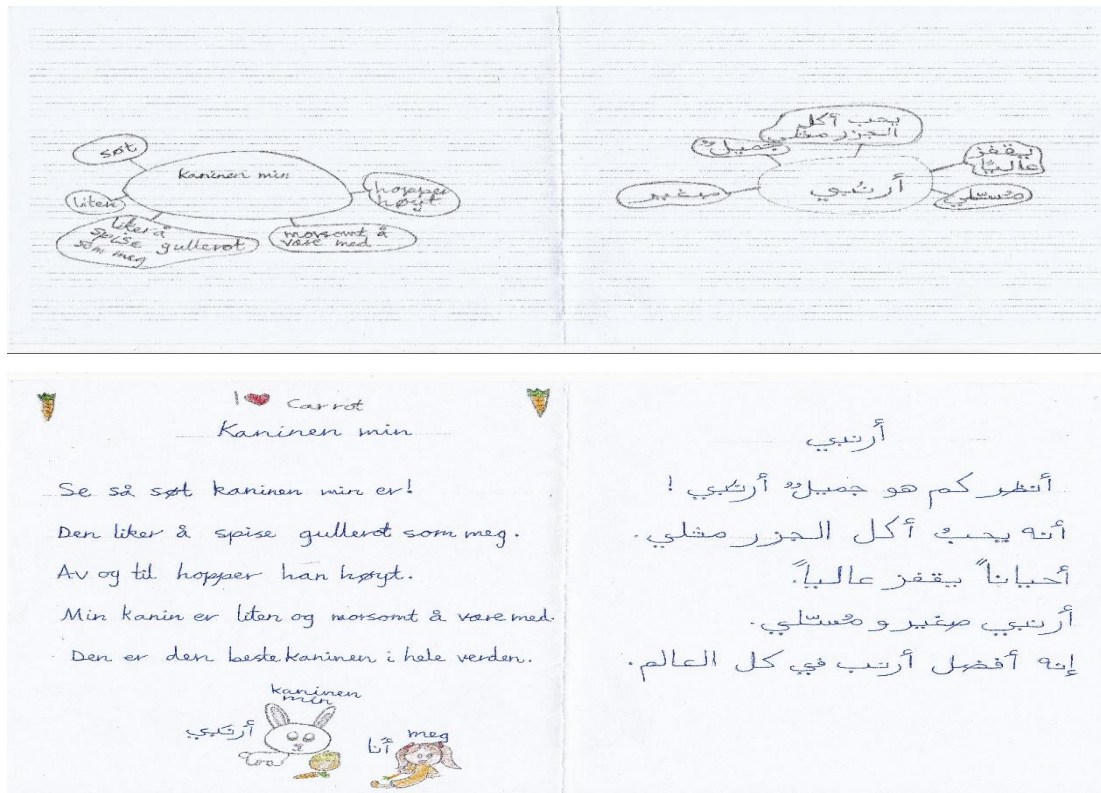 søt
kaninen min
liten
hopper
høyt
liker å
spise gullerot
som meg
morsomt å
være med
يحب أكل
الجزر مثلي
جميلٌ
يقفز
عالياً
صغير
أرنبي
مُسَلي
I ❤ Carrot
Kaninen min
Se så søt kaninen min er!
Den liker å spise gullerot som meg.
Av og til hopper han høyt.
Min kanin er liten og morsomt å være med.
Den er den beste kaninen i hele verden.
kaninen
min
أرنبي
meg
أنا
أرنبي
أنظر كم هو جميلٌ أرنبي !
أنه يحبُ أكل الجزر مثلي.
أحياناً يقفز عالياً.
أرنبي صغير و مُسَلي.
إنه أفضل أرنب في كل العالم.